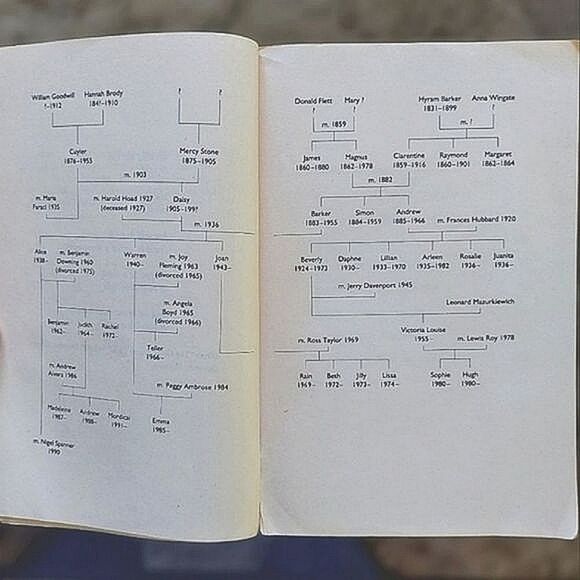 William Goodwill
?–1912
Hannah Brody
184?–1910
? ?
Cuyler
1876–1955
Mercy Stone
1875–1905
m. 1903
m. Maria
Faraci 1935
m. Harold Hoad 1927
(deceased 1927)
Daisy
1905–199?
m. 1936
Alice
1938–
m. Benjamin
Downing 1960
(divorced 1975)
Warren
1940–
m. Joy
Fleming 1963
(divorced 1965)
Joan
1943–
m. Angela
Boyd 1965
(divorced 1966)
Benjamin
1962–
Judith
1964–
Rachel
1972–
Teller
1966–
m. Andrew
1986
m. Peggy Ambrose 1984
Madeleine
1987–
Andrew
1988–
Mordicai
1991–
Emma
1985–
m. Nigel Spanner
1990
Donald Flett
?
Mary ?
?
m. 1859
Hyram Barker
1831–1899
Anna Wingate
?
m. ?
James
1860–1880
Magnus
1862–1978
Clarentine
1859–1916
Raymond
1860–1901
Margaret
1862–1864
m. 1882
Barker
1883–1955
Simon
1884–1959
Andrew
1885–1966
m. Frances Hubbard 1920
Beverly
1924–1973
Daphne
1930–
Lillian
1933–1970
Arleen
1935–1982
Rosalie
1936–
Juanita
1936–
m. Jerry Davenport 1945
Leonard Mazurkiewich
Victoria Louise
1955
m. Ross Taylor 1969
m. Lewis Roy 1978
Rain
1969–
Beth
1972–
Jilly
1973–
Lissa
1974–
Sophie
1980–
Hugh
1980–